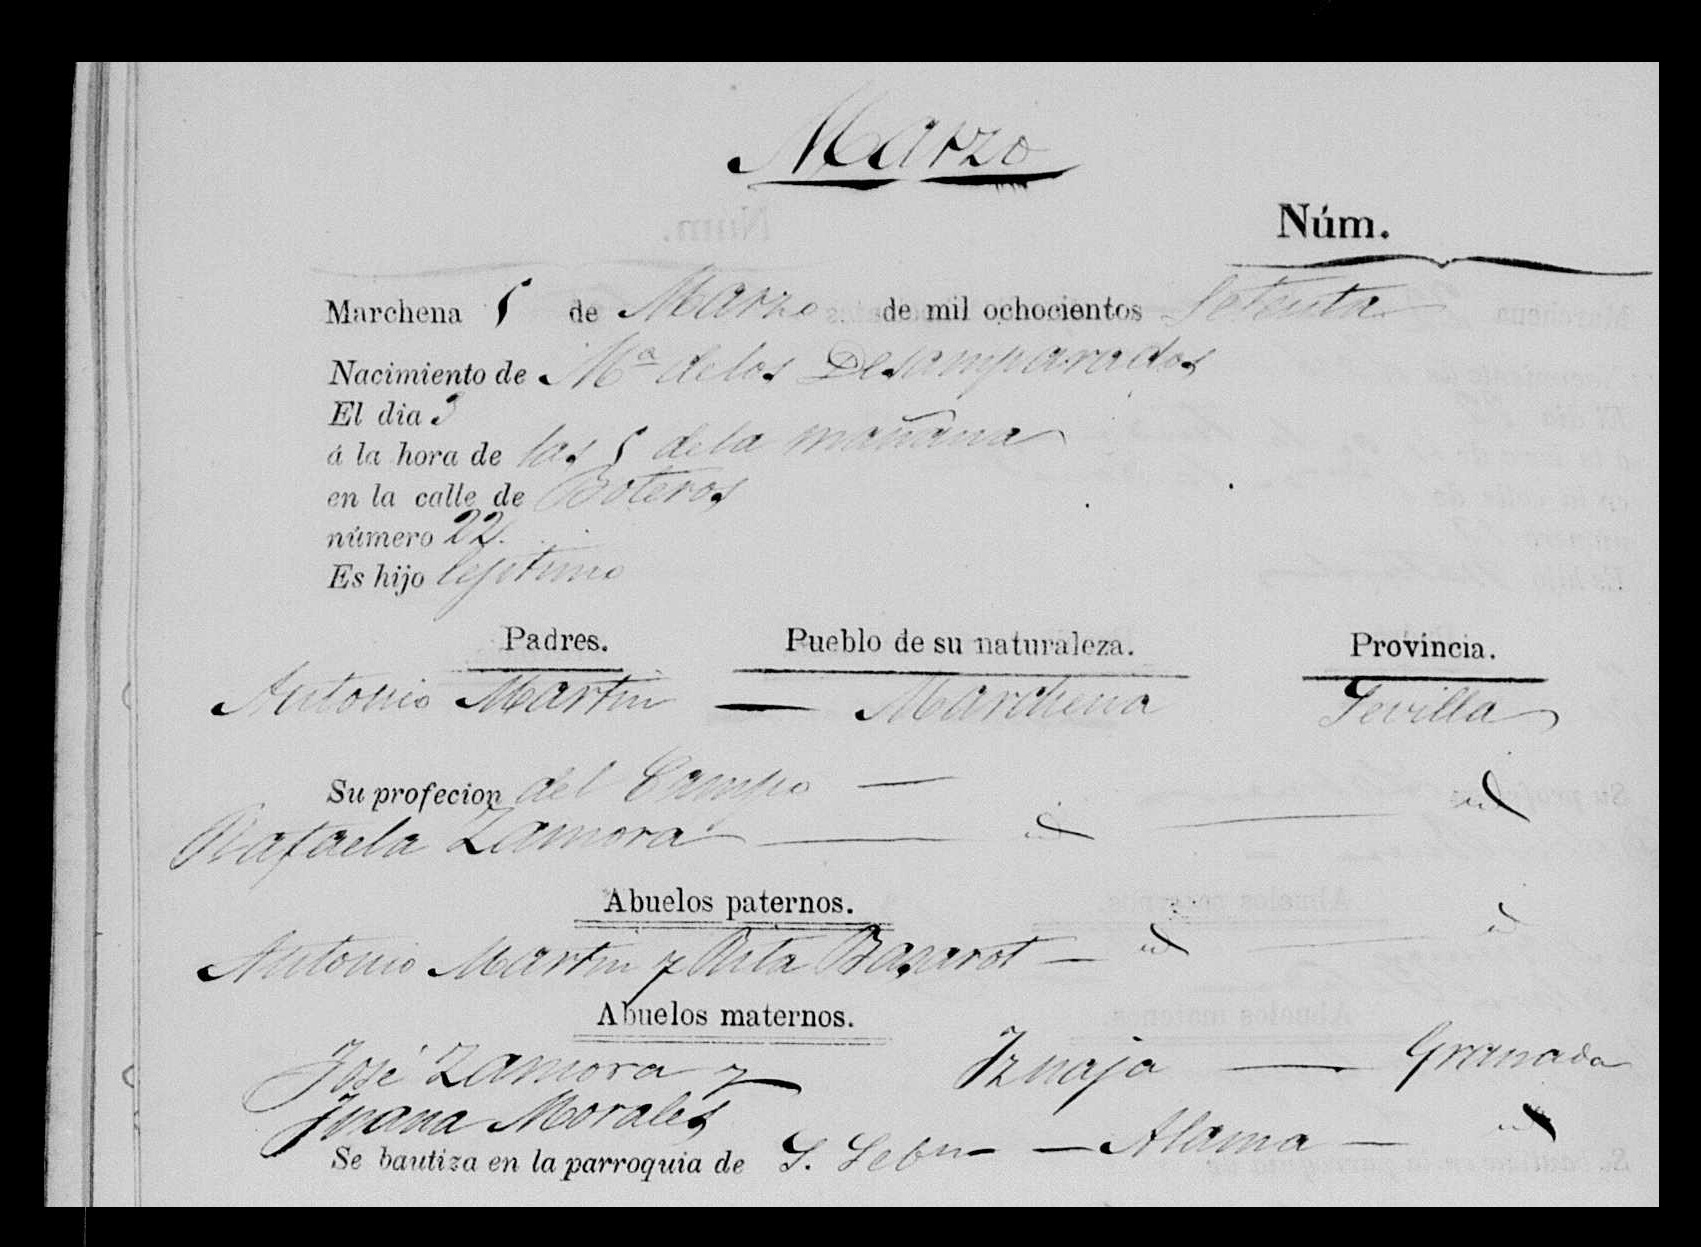 Marzo
Núm.
Marchena 5 de Marzo de mil ochocientos Setenta
Nacimiento de Mª de los Desamparados
El dia 3
á la hora de las 5 de la mañana
en la calle de Boteros
número 22.
Es hijo lejitimo
Padres. Pueblo de su naturaleza. Provincia.
Antonio Martin — Marchena Sevilla
Su profecion del Campo — id
Rafaela Zamora — id
Abuelos paternos.
Antonio Martin y Rita — id — id
Abuelos maternos.
José Zamora y Iznaja — Granada
Juana Morales — Alama — id
Se bautiza en la parroquia de S. Sebn